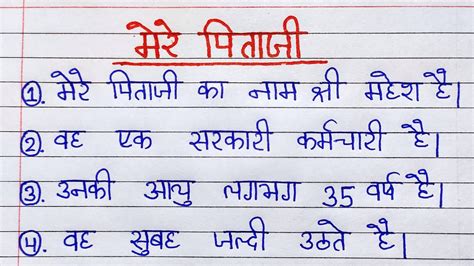 मेरे पिताजी
1. मेरे पिताजी का नाम श्री महेश है।
2. वह एक सरकारी कर्मचारी है।
3. उनकी आयु लगभग 35 वर्ष है।
4. वह सुबह जल्दी उठते है।